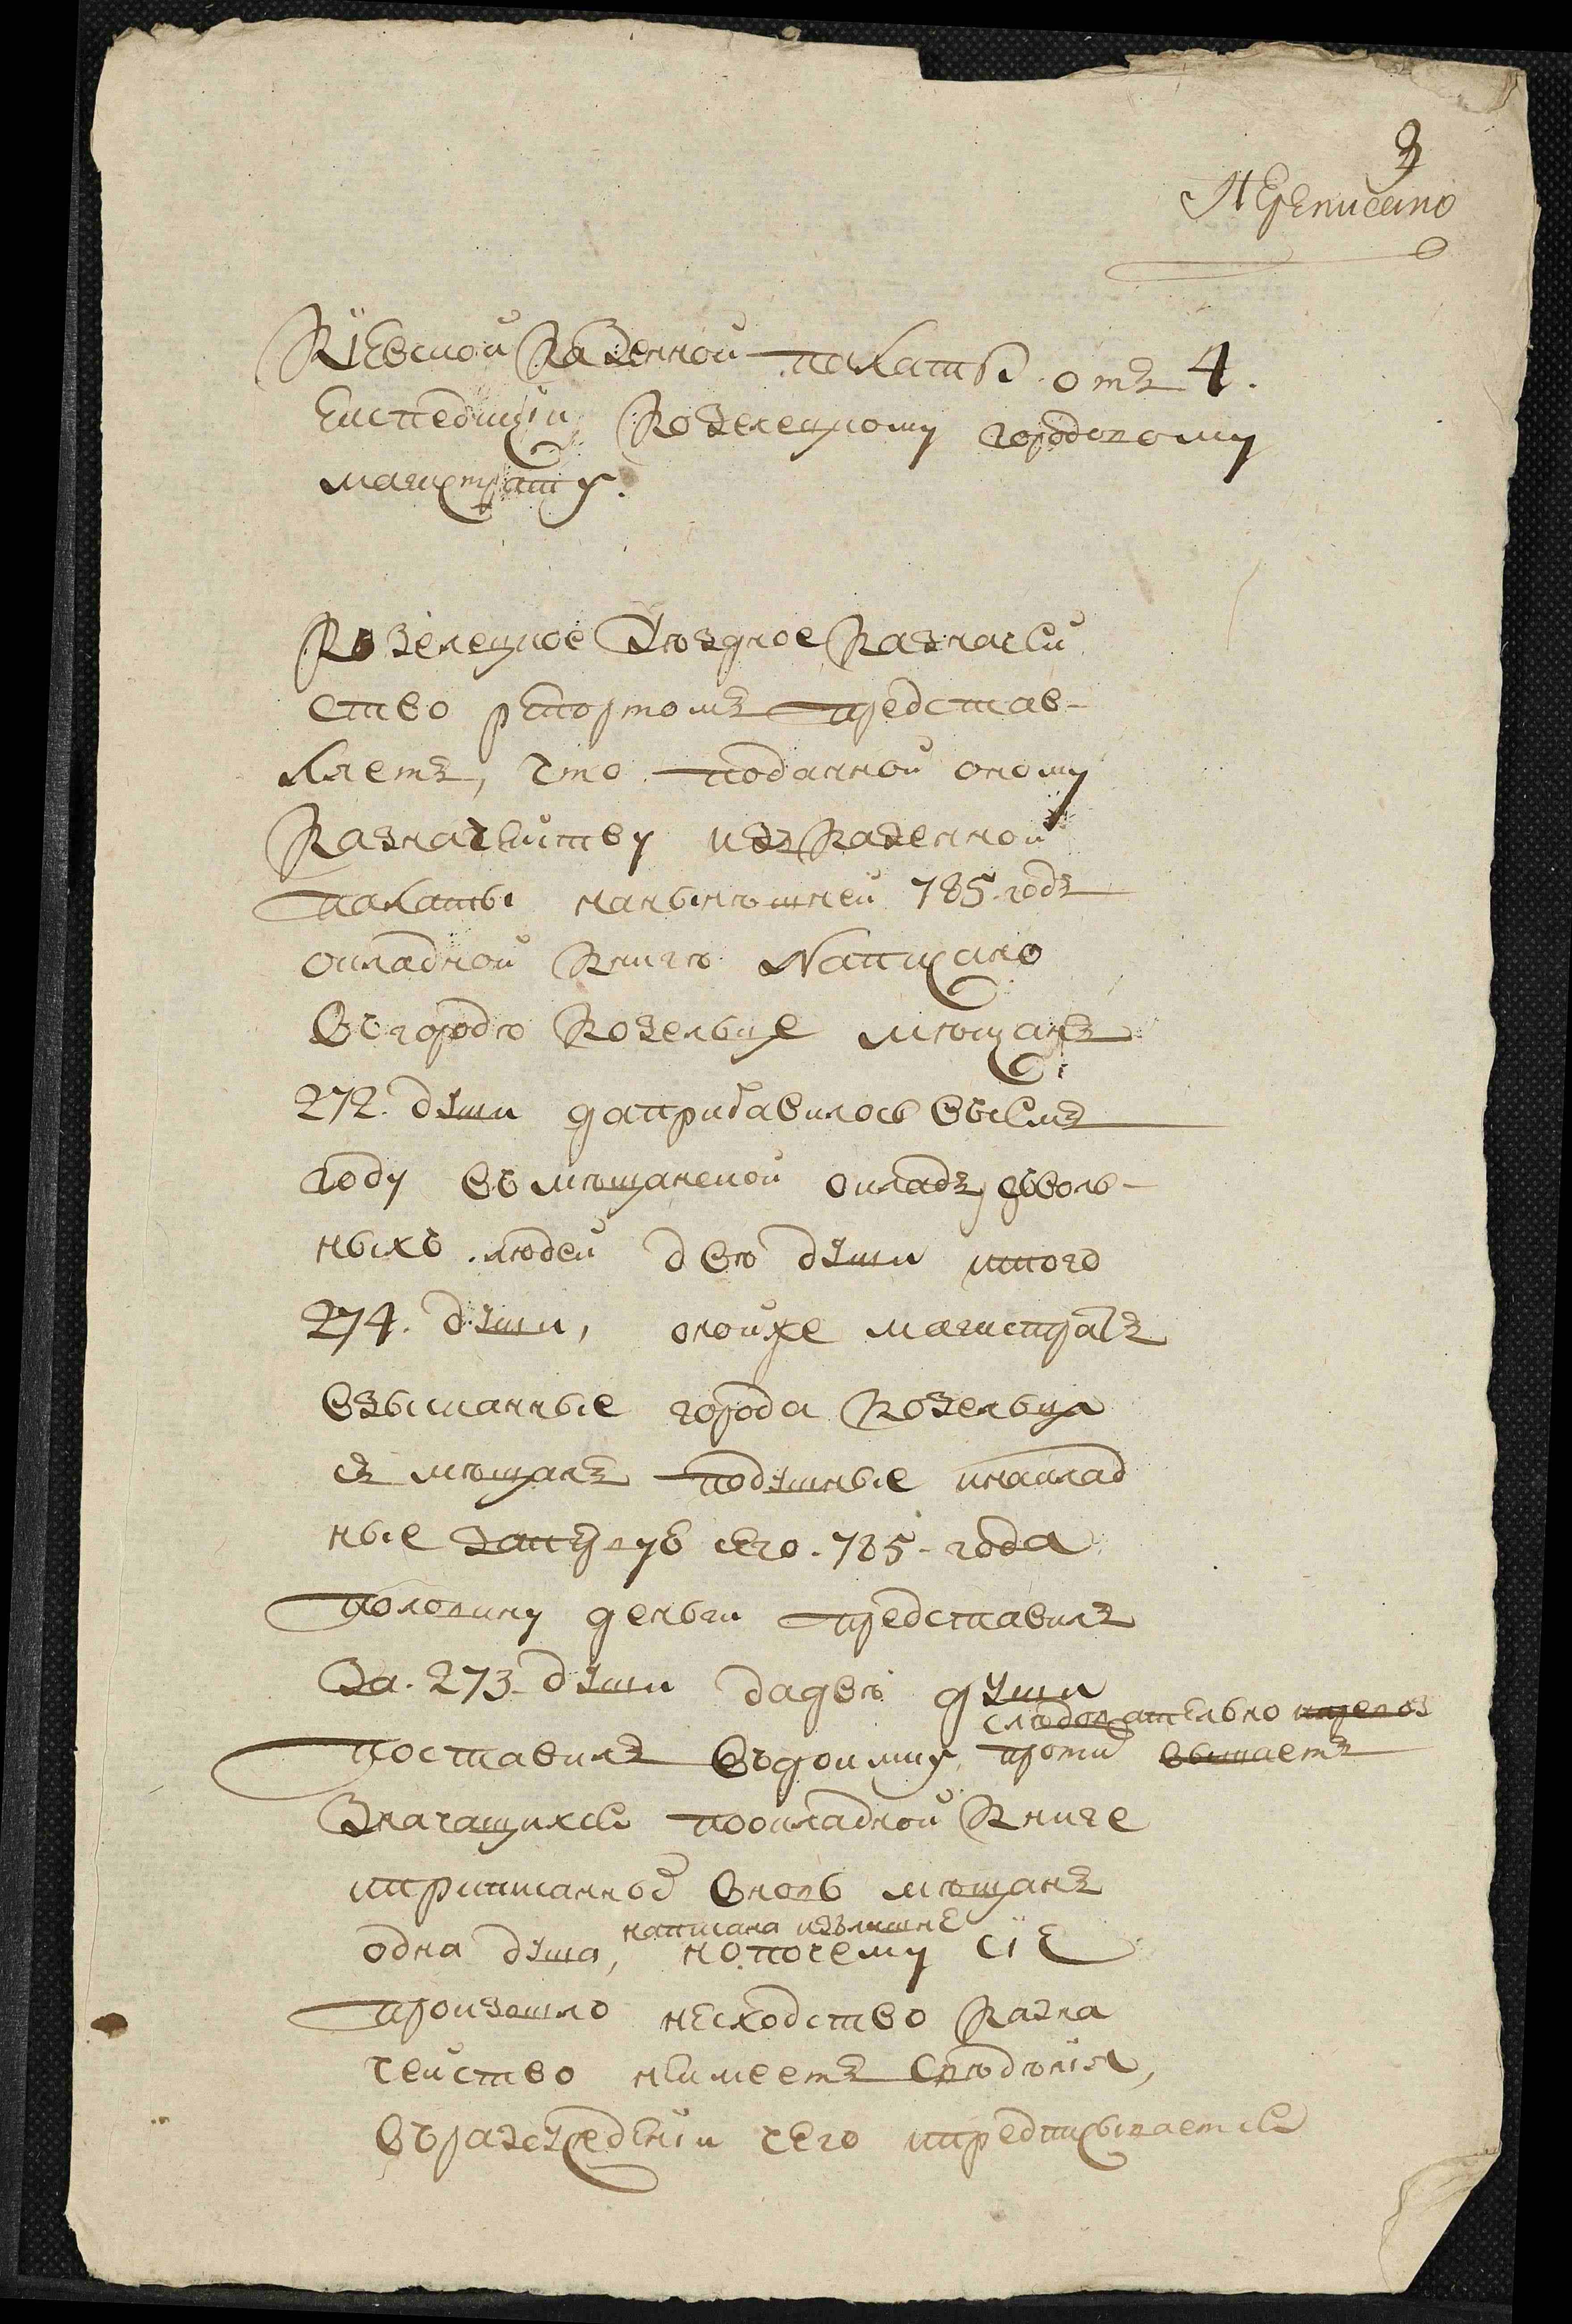 3
Переписано
Кіевской Казенной палаты отъ 4.
Експедиціи Козелецкому городовому
магистрату.
Козелецкое Уѣздное Казначей
ство репортомъ представ-
ляетъ, что поданной оному
Казначейству изъ Казенной
палаты нанынѣшней 785 годъ
окладной Книгѣ Написано
въ городѣ Козельце мѣщанъ
272. души да прибавилось въ семъ
году въ мѣщанской окладъ зволь-
ныхъ людей двѣ души итого
274. души, оной же магистратъ
взысканные города Козельца
съ мѣщанъ подушные инаклад
ные за первую сего 785 года
половину деньги представилъ
За 273 души да двѣ души
слѣдовательно
поставилъ въ доимку, против
Значащихся по окладной Книге
и приписанной вновь мѣщанъ
написана излишне
одна душа, но почему сіе
произошло несходство Казна
чейство неимеетъ Сведѣнія,
въ разсуждении чего и предписывается